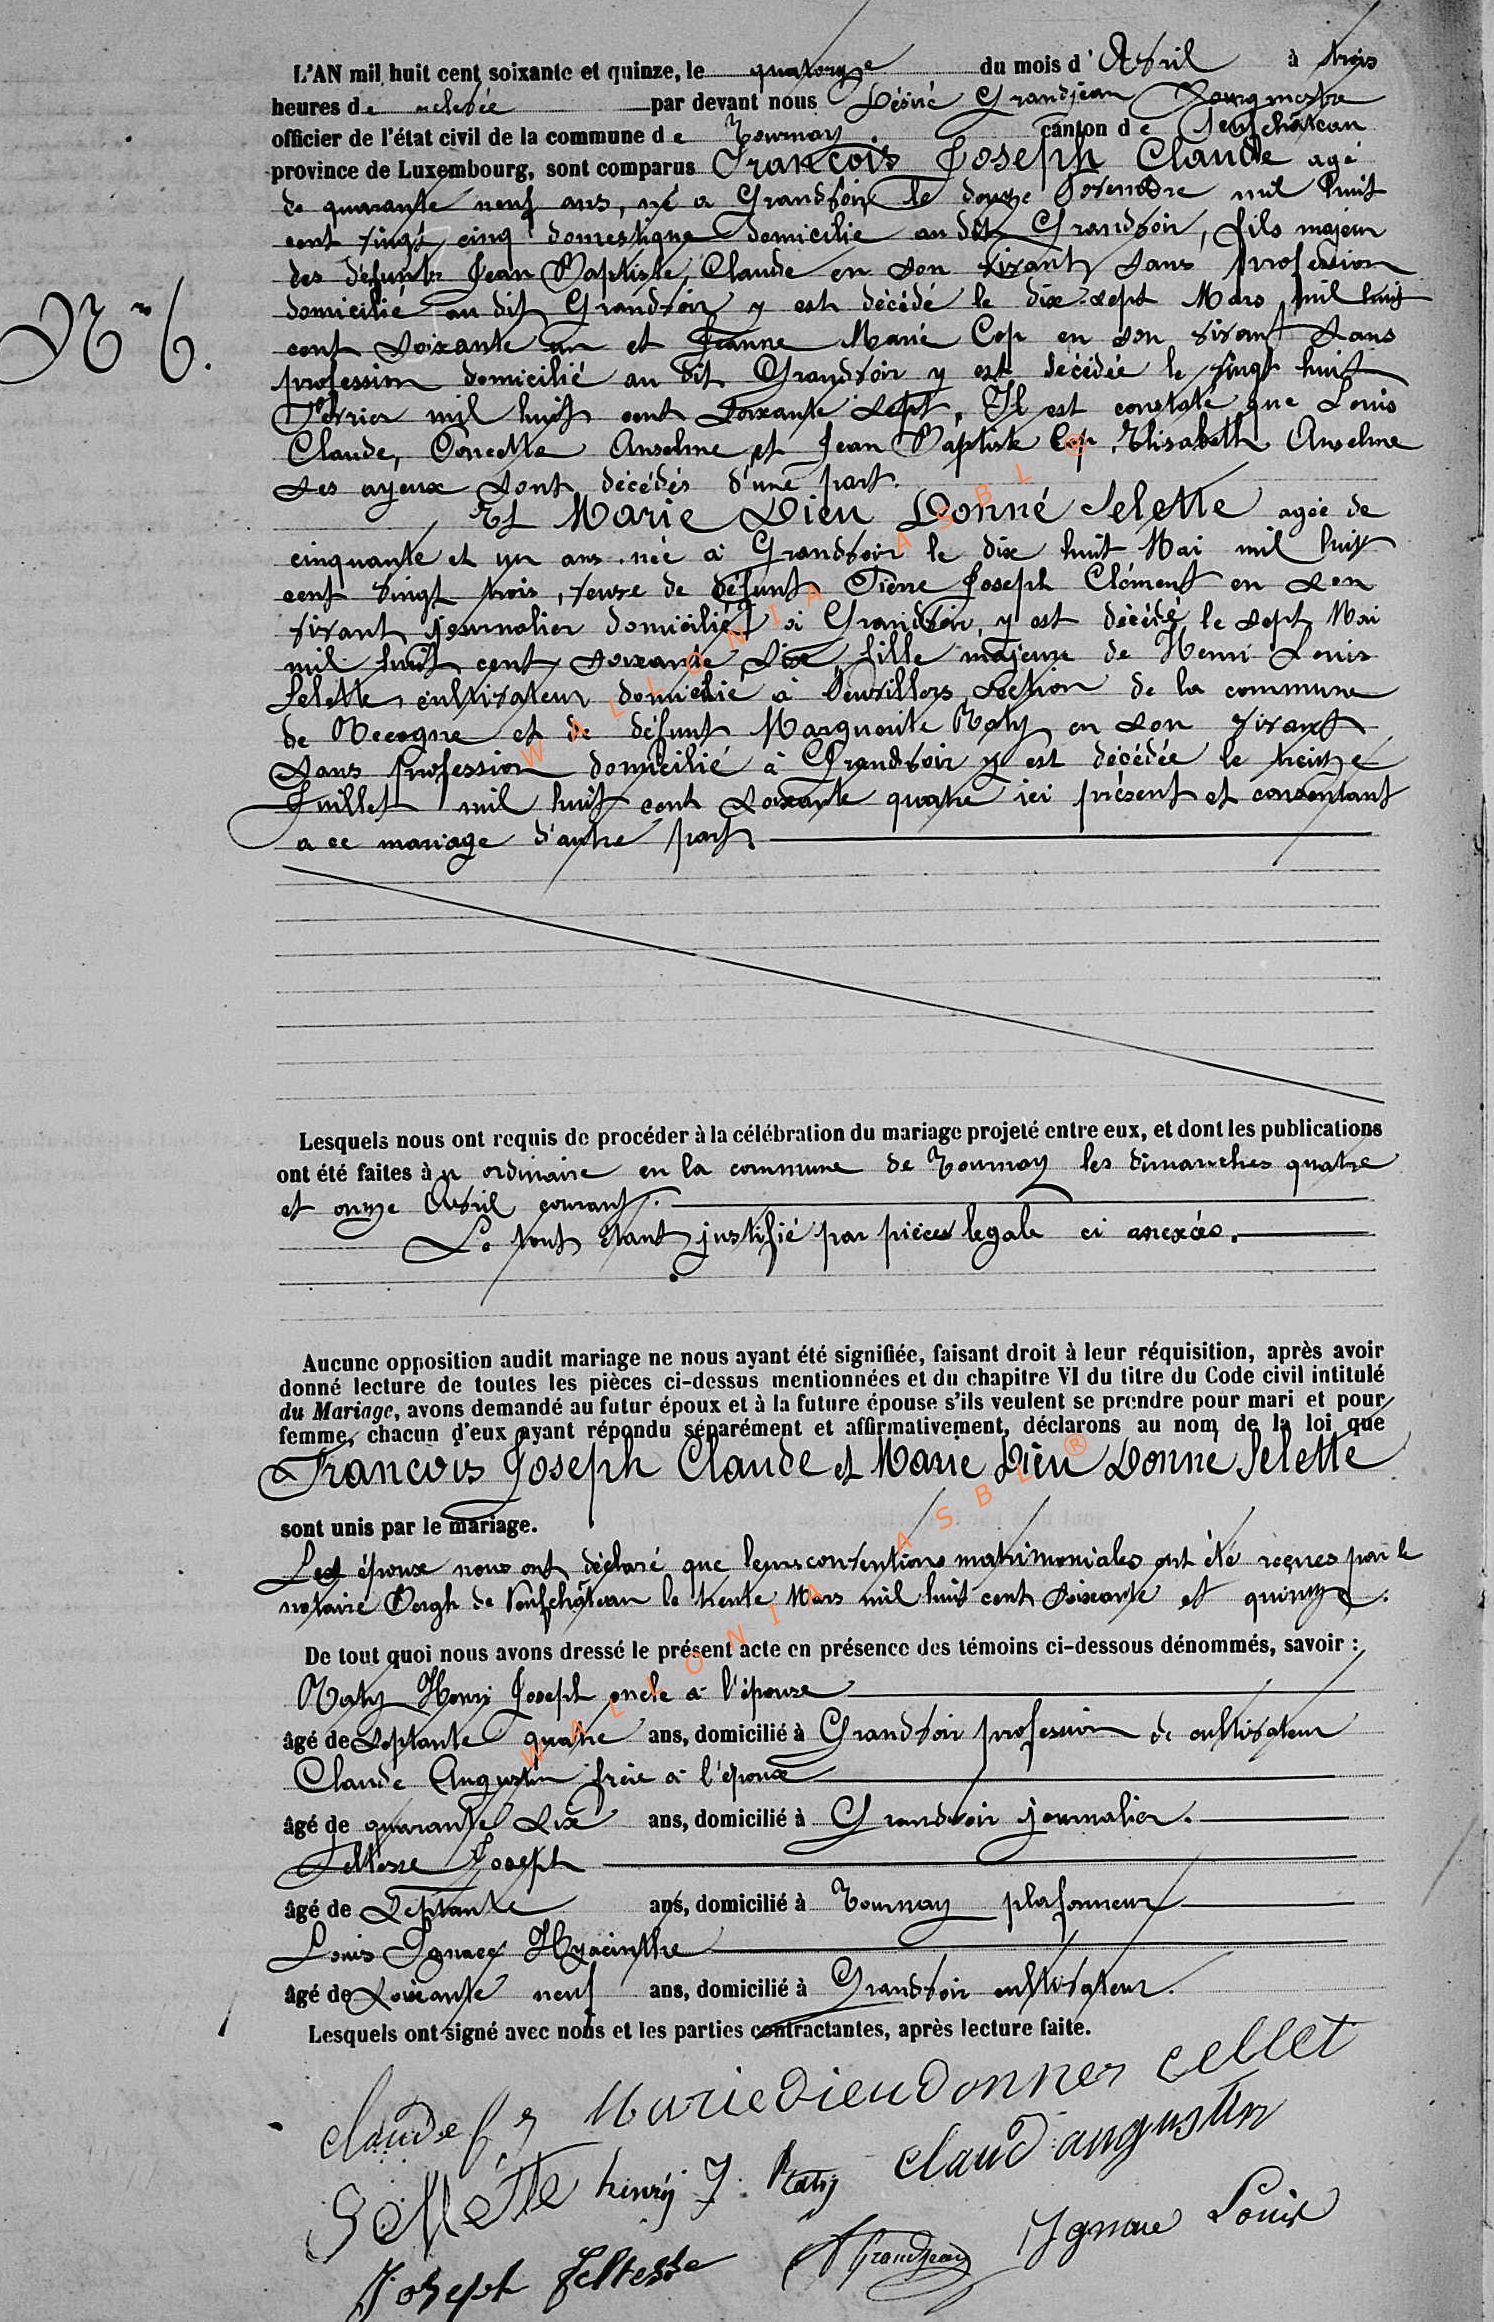 L'AN mil huit cent soixante et quinze, le quatorze du mois d'Avril à trois
heures de relevée par devant nous Désiré Grandjean Bourgmestre
officier de l'état civil de la commune de Tournay canton de Neufchâteau
province de Luxembourg, sont comparus Francois Joseph Claude agé
de quarante neuf ans, né a Grandvoir le douze Novembre mil huit
cent vingt cinq domestique domicilié au dit Grandvoir, fils majeur
des défunts Jean Baptiste Claude en son vivant sans profession
domicilié au dit Grandvoir y est décédé le dix-sept Mars mil huit
cent soixante un et Jeanne Marie Cop en son vivant sans
profession domicilié au dit Grandvoir y est décédée le vingt huit
Fevrier mil huit cent soixante sept. Il est constaté que Louis
Claude, Poncette Anselme et Jean Baptiste Cop, Elisabeth Anselme
ses ayeux sont décédés d'une part.
Et Marie Dieu Donné Selette agée de
cinquante et un ans née à Grandvoir le dix huit Mai mil huit
cent vingt trois, veuve de défunt Pierre Joseph Clément en son
vivant journalier domicilié à Grandvoir, y est décédé le sept Mai
mil huit cent soixante dix, fille majeure de Henri Louis
Selette, cultivateur domicilié à Neuvillers section de la commune
de Recogne et de défunt Marguerite Raty en son vivant
sans profession domicilié à Grandvoir y est décédée le treize
Juillet mil huit cent soixante quatre ici présent et consentant
a ce mariage d'autre part
N° 6.
Lesquels nous ont requis de procéder à la célébration du mariage projeté entre eux, et dont les publications
ont été faites à l' ordinaire en la commune de Tournay les dimanches quatre
et onze Avril courant.
Le tout étant justifié par pièces legale ci anexées.
Aucune opposition audit mariage ne nous ayant été signifiée, faisant droit à leur réquisition, après avoir
donné lecture de toutes les pièces ci-dessus mentionnées et du chapitre VI du titre du Code civil intitulé
du Mariage, avons demandé au futur époux et à la future épouse s'ils veulent se prendre pour mari et pour
femme, chacun d'eux ayant répondu séparément et affirmativement, déclarons au nom de la loi que
Francois Joseph Claude et Marie Dieu Donné Selette
sont unis par le mariage.
Les époux nous ont déclaré que leurs conventions matrimoniales ont été reçues par le
notaire de Neufchâteau le trente Mars mil huit cent soixante et quinze.
De tout quoi nous avons dressé le présent acte en présence des témoins ci-dessous dénommés, savoir :
Raty Henri Joseph oncle a l'épouse
âgé de septante quatre ans, domicilié à Grandvoir profession de cultivateur
Claude Augustin frère a l'époux
âgé de quarante six ans, domicilié à Grandvoir journalier.
Feltesse Joseph
âgé de septante ans, domicilié à Tournay plafonneur
Louis Ignace Hyacinthe
âgé de soixante neuf ans, domicilié à Grandvoir cultivateur.
Lesquels ont signé avec nous et les parties contractantes, après lecture faite.
claude f j Mariedieudonner cellet
Sellette henry J. Raty claud augustin
Joseph feltesse Grandjean Ignace Louis
WALLONIA ASBL ®
WALLONIA ASBL ®